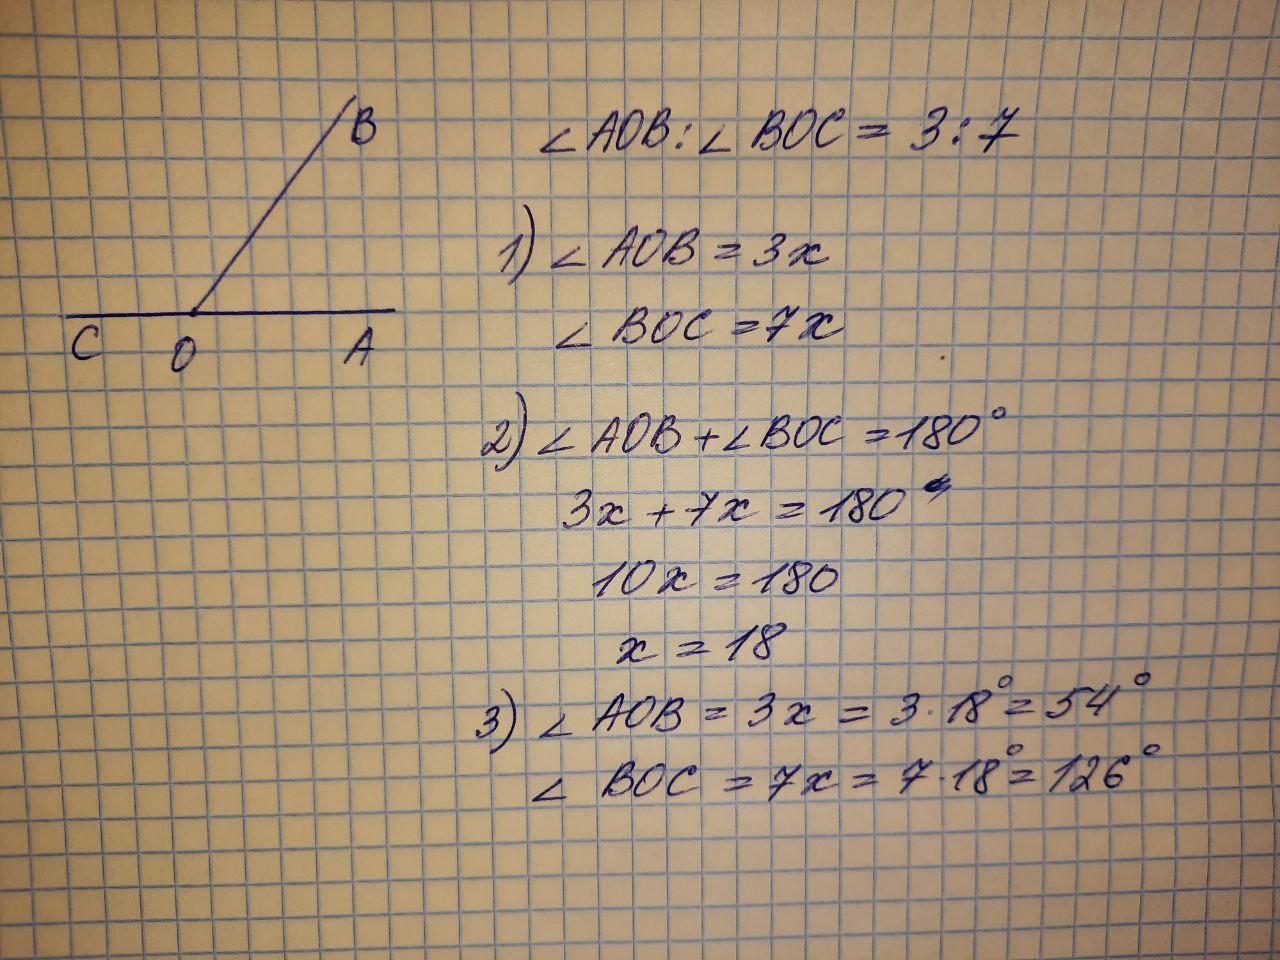 B
C O A
∠AOB : ∠BOC = 3 : 7
1) ∠AOB = 3x
∠BOC = 7x
2) ∠AOB + ∠BOC = 180°
3x + 7x = 180
10x = 180
x = 18
3) ∠AOB = 3x = 3 · 18° = 54°
∠BOC = 7x = 7 · 18° = 126°